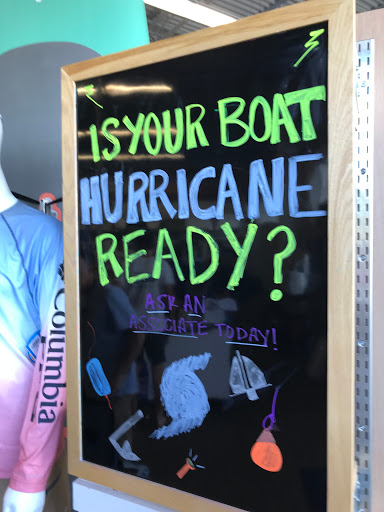 IS YOUR BOAT
HURRICANE
READY?
ASK AN
ASSOCIATE TODAY!
Columbia